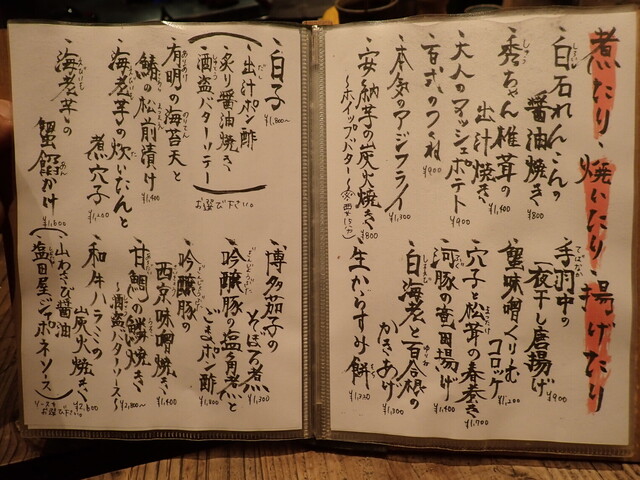 煮たり、焼いたり、揚げたり
・白石れんこんの
醤油焼き ¥800
・秀ちゃん椎茸の
出汁焼き ¥1,400
・大人のマッシュポテト ¥900
・百式のつくね ¥900
・本気のアジフライ ¥1,300
・安納芋の炭火焼き ¥800
〜ホイップバター〜
・手羽中の
一夜干し唐揚げ ¥900
・蟹味噌くりむ
コロッケ ¥1,200
・穴子と松茸の春巻き ¥1,700
・河豚の竜田揚げ ¥1,400
・白海老と百合根の
かきあげ ¥1,300
・生からすみ餅
・白子 ¥1,800〜
・出汁ポン酢
・炙り醤油焼き
・酒盗バターソテー
お選び下さい。
・有明の海苔天と
鰆の松前漬け ¥1,400
・海老芋の炊いたんと
煮穴子 ¥1,200
・海老芋の
蟹餡かけ ¥1,600
・博多茄子の
そぼろ煮 ¥1,300
・吟醸豚の塩角煮と
ごまポン酢 ¥1,800
・吟醸豚の
西京味噌焼き ¥1,400
・甘鯛の鱗焼き
〜酒盗バターソース〜 ¥1,800〜
・和牛ハラミの
炭火焼き ¥2,800
・山わさび醤油
・塩田屋ジャポネソース
ソースを
お選び下さい。